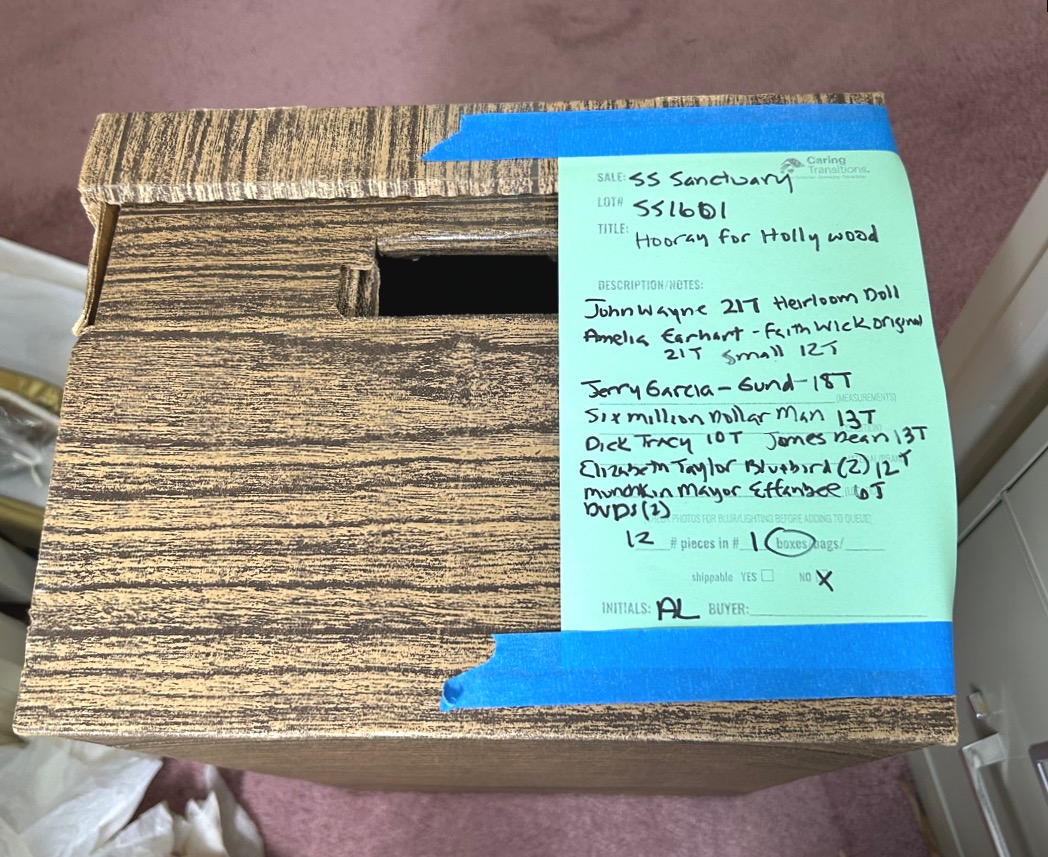 Caring
Transitions.
SALE: SS Sanctuary
LOT# SS1601
TITLE: Hooray for Hollywood
DESCRIPTION/NOTES:
John Wayne 21T Heirloom Doll
Amelia Earhart - Faith Wick original
21T Small 12T
Jerry Garcia - Gund - 18T
(MEASUREMENTS)
Six million Dollar Man 13T
Dick Tracy 10T James Dean 13T
Elizabeth Taylor Bluebird (2) 12T
munchkin Mayor Effanbee 10T
DVDs (2)
PHOTOS FOR BLUR/LIGHTING BEFORE ADDING TO QUEUE)
12 # pieces in # 1 boxes/bags/
shippable YES NO X
INITIALS: AL BUYER: